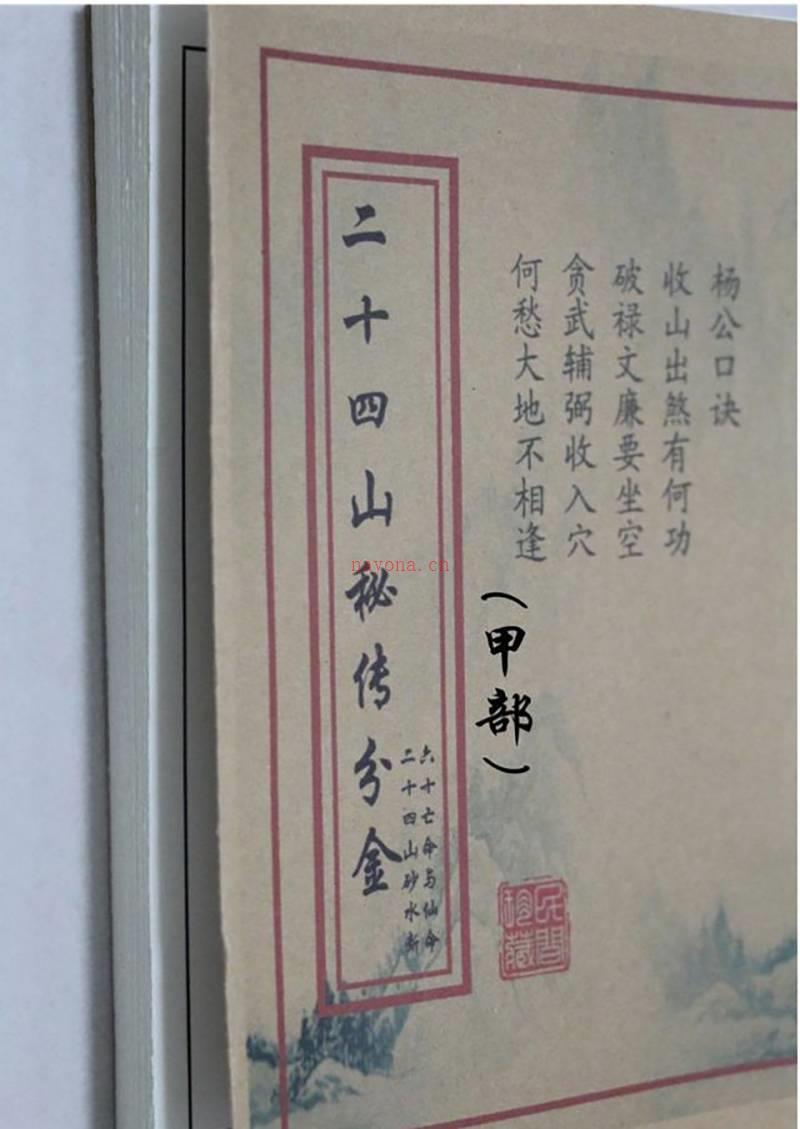 杨公口诀
收山出煞有何功
破禄文廉要坐空
贪武辅弼收入穴
何愁大地不相逢
(甲部)
二十四山秘传分金
六十亡命与仙命
二十四山砂水断
民间
珍藏
nayona.cn